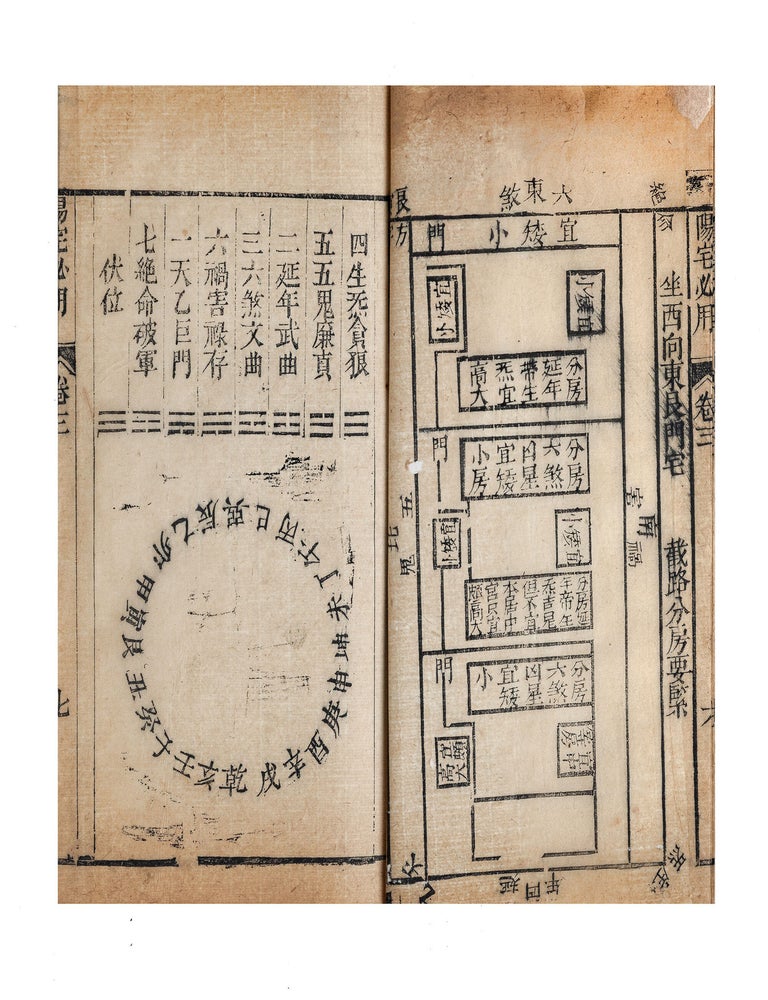 陽宅必用
卷三
坐西向東艮門宅 截路分房要緊
六東煞
宜矮小 門
宜矮小
宜矮小
分房延年帶生炁宜高大
門
分房六煞凶星宜矮小房
宜矮小
宜矮小
五鬼
北
門
分房六煞凶星宜矮小
四生炁貪狼
五五鬼廉貞
二延年武曲
三六煞文曲
六禍害祿存
一天乙巨門
七絕命破軍
伏位
丙午丁未坤申庚酉辛戌乾亥壬子癸丑艮寅甲卯乙辰巽巳
陽宅必用
卷三
七